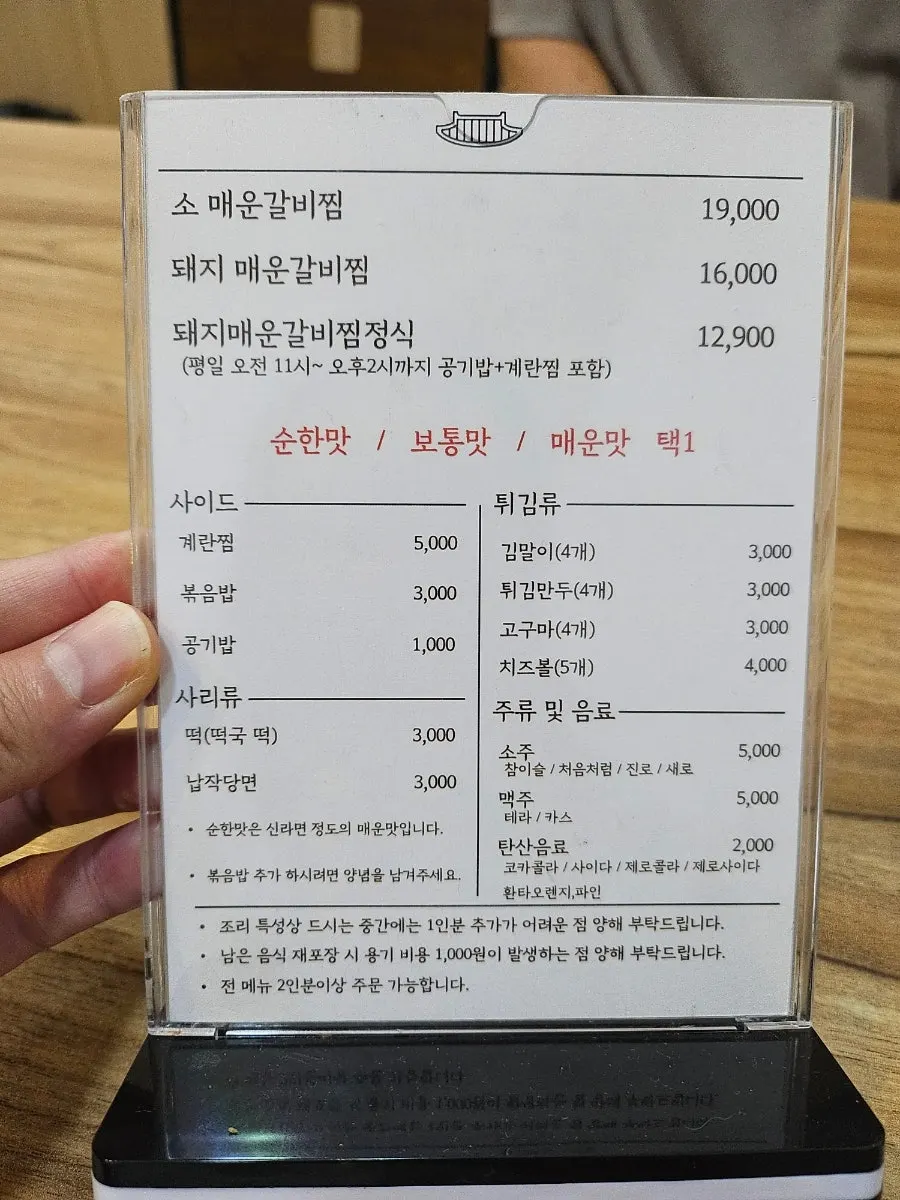 소 매운갈비찜 19,000
돼지 매운갈비찜 16,000
돼지매운갈비찜정식 12,900
(평일 오전 11시~ 오후2시까지 공기밥+계란찜 포함)
순한맛 / 보통맛 / 매운맛 택1
사이드
계란찜 5,000
볶음밥 3,000
공기밥 1,000
사리류
떡(떡국 떡) 3,000
납작당면 3,000
• 순한맛은 신라면 정도의 매운맛입니다.
• 볶음밥 추가 하시려면 양념을 남겨주세요.
튀김류
김말이(4개) 3,000
튀김만두(4개) 3,000
고구마(4개) 3,000
치즈볼(5개) 4,000
주류 및 음료
소주 5,000
참이슬 / 처음처럼 / 진로 / 새로
맥주 5,000
테라 / 카스
탄산음료 2,000
코카콜라 / 사이다 / 제로콜라 / 제로사이다
환타오렌지,파인
• 조리 특성상 드시는 중간에는 1인분 추가가 어려운 점 양해 부탁드립니다.
• 남은 음식 재포장 시 용기 비용 1,000원이 발생하는 점 양해 부탁드립니다.
• 전 메뉴 2인분이상 주문 가능합니다.